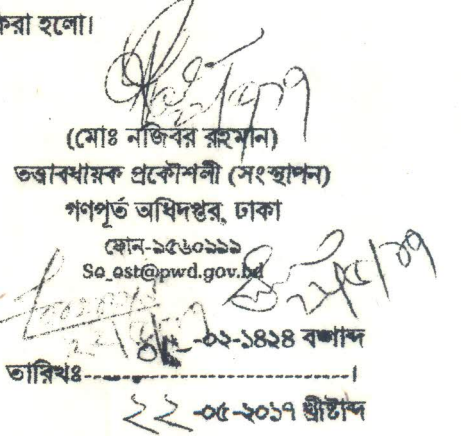 করা হলো।
(মোঃ নজিবর রহমান)
তত্ত্বাবধায়ক প্রকৌশলী (সংস্থাপন)
গণপূর্ত অধিদপ্তর, ঢাকা
ফোন-৯৫৬০৯৯৯
So_ost@pwd.gov.bd
২২/৫/১৭
০৮-০২-১৪২৪ বঙ্গাব্দ
তারিখঃ-----------------------------।
২২-০৫-২০১৭ খ্রীষ্টাব্দ